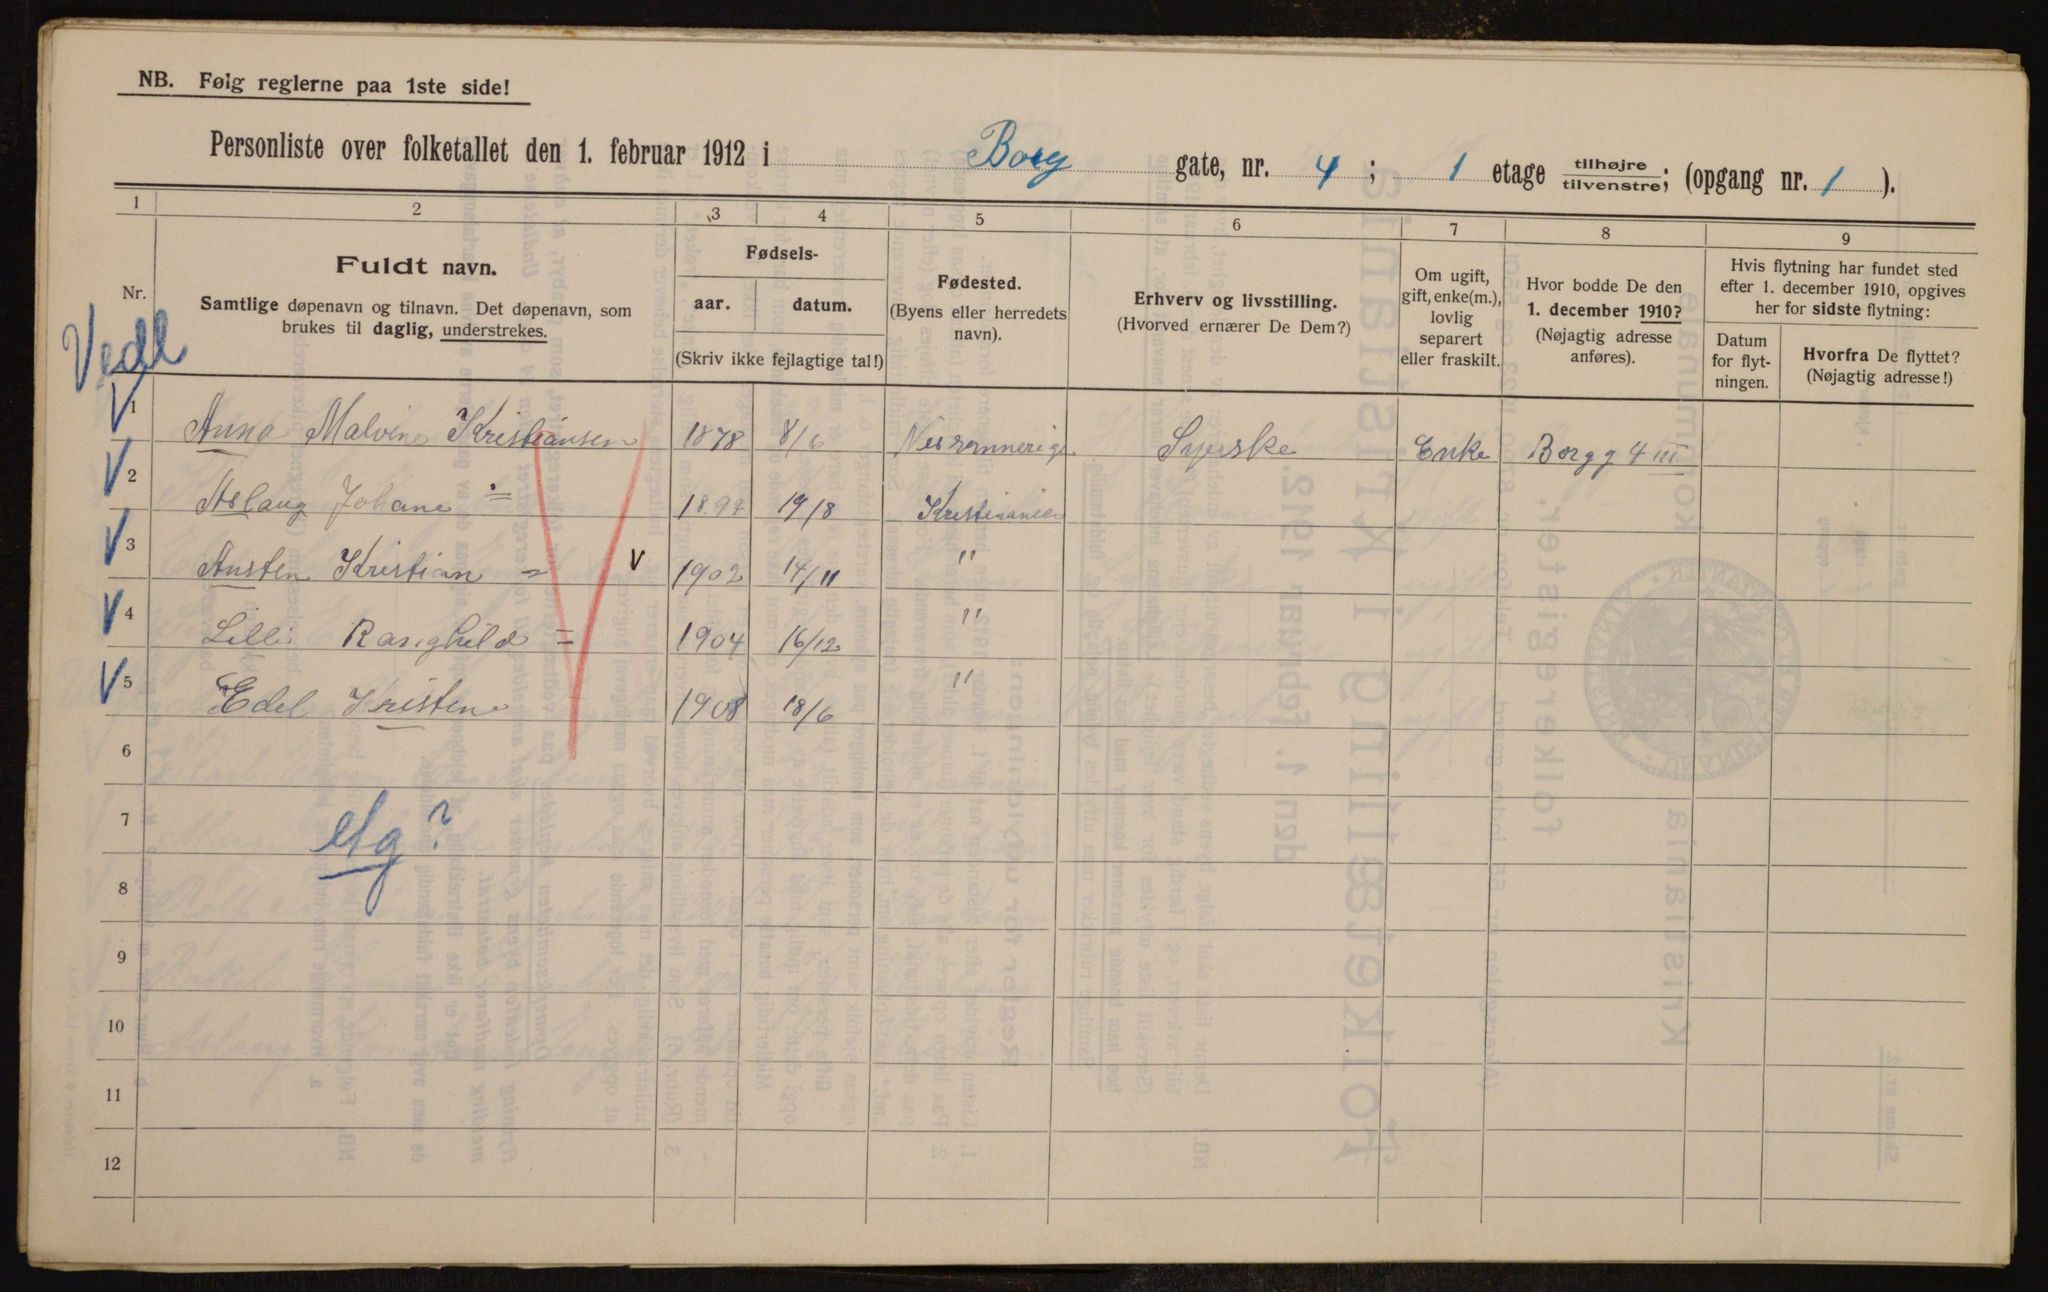 NB. Følg reglerne paa 1ste side!
Personliste over folketallet den 1. februar 1912 i Borg gate, nr. 4 ; 1 etage tilhøjre/tilvenstre; (opgang nr. 1 ).
1 2 3 4 5 6 7 8 9
Nr.
Fuldt navn.
Samtlige døpenavn og tilnavn. Det døpenavn, som
brukes til daglig, understrekes.
Fødsels-
aar. datum.
(Skriv ikke fejlagtige tal!)
Fødested.
(Byens eller herredets
navn).
Erhverv og livsstilling.
(Hvorved ernærer De Dem?)
Om ugift,
gift, enke(m.),
lovlig
separert
eller fraskilt.
Hvor bodde De den
1. december 1910?
(Nøjagtig adresse
anføres).
Hvis flytning har fundet sted
efter 1. december 1910, opgives
her for sidste flytning:
Datum
for flyt-
ningen.
Hvorfra De flyttet?
(Nøjagtig adresse!)
Vedl
1 Anna Malvine Kristiansen 1878 8/6 Syerske Enke Borgg 4 III
2 Aslaug Johane = 1899 19/8 Kristiania
3 Austen Kristian = V 1902 14/11 "
4 Lilli Ranghild = 1904 16/12 "
5 Edel Kristene 1908 18/6 "
6
7
8
9
10
11
12